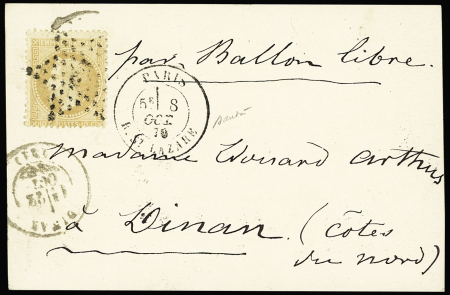 par Ballon libre.
PARIS
5E 8
OCT.
70
R. ST LAZARE
Madame Edouard Arthus
à Dinan (Côtes
du nord)
DINAN
OCT.